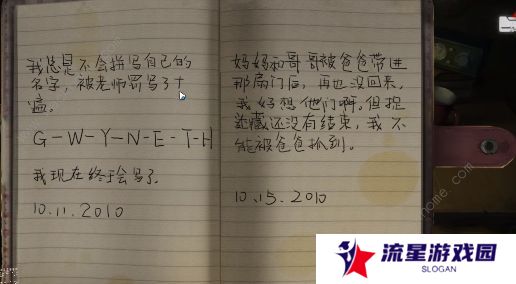 我总是不会拼写自己的
名字，被老师罚写了十
遍。
G-W-Y-N-E-T-H
我现在终于会写了。
10.11.2010
妈妈和哥哥被爸爸带进
那扇门后，再也没回来，
我好想他们啊。但捉
迷藏还没有结束，我不
能被爸爸抓到。
10.15.2010
流星游戏园
SLOGAN